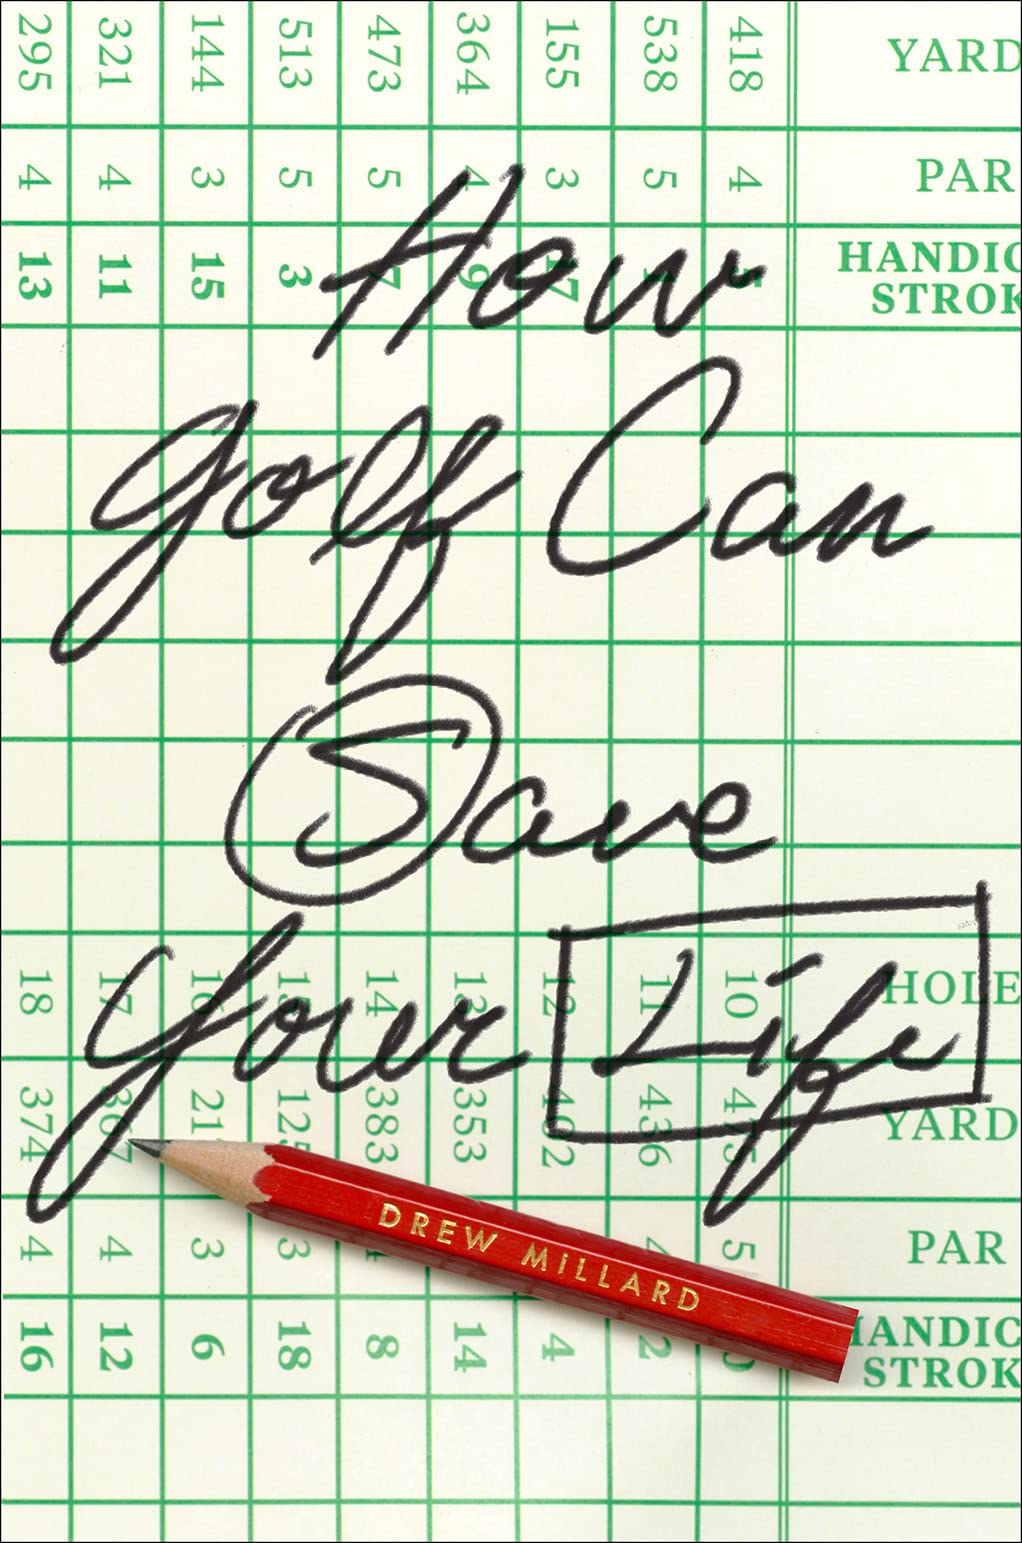 295 321 144 513 473 364 155 538 418 YARD
4 4 3 5 5 4 3 5 4 PAR
13 11 15 3 7 9 17 HANDIC
STROK
How
golf Can
Save
your Life
18 17 16 15 14 13 12 11 10 HOLE
374 367 383 353 402 436 475 YARD
DREW MiLLARD
4 4 3 3 5 PAR
16 12 6 18 8 14 4 2 HANDIC
STROK